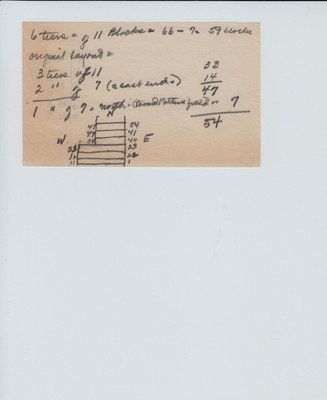 6 tiers = of 11 Blocks = 66 - 7 = 59 blocks
original layout =
3 tiers of 11
2 " of 7 (east end)
1 " of 7 = north = (toward field)
33
14
47
7
54
N
47 54
41
40
W E
33 23
22
11 1